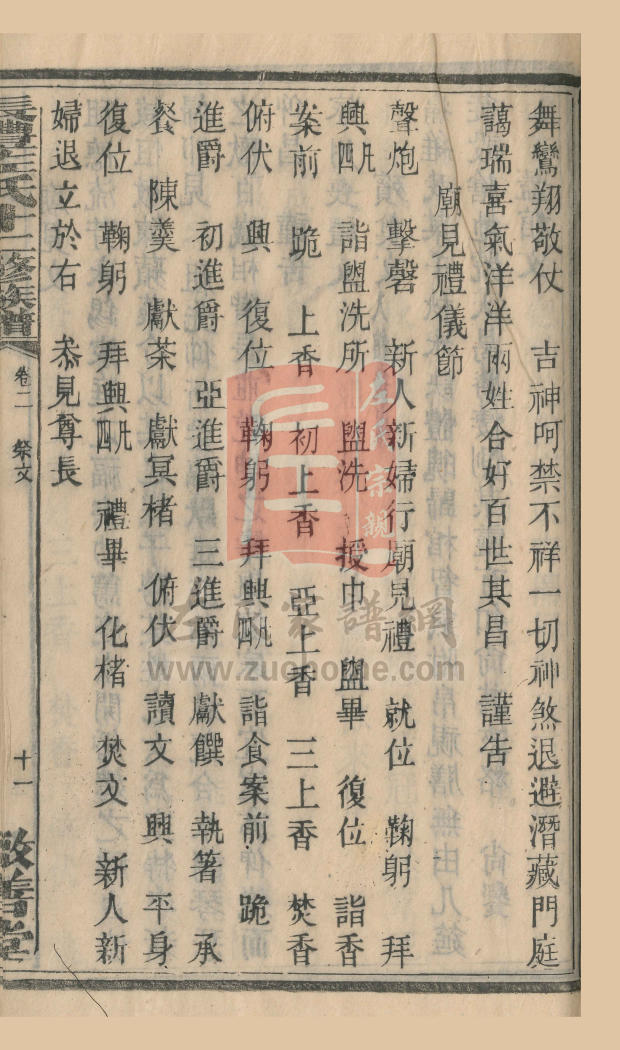 舞鸞翔敬仗　吉神呵禁不祥一切神煞退避潛藏門庭
藹瑞喜氣洋洋兩姓合好百世其昌　謹告
廟見禮儀節
聲炮　擊磬　新人新婦行廟見禮　就位　鞠躬　拜
興四凡　詣盥洗所　盥洗　授巾　盥畢　復位　詣香
案前　跪　上香　初上香　亞上香　三上香　焚香
俯伏　興　復位　鞠躬　拜興四凡　詣食案前　跪
進爵　初進爵　亞進爵　三進爵　獻饌　執箸　承
餐　陳羹　獻茶　獻冥楮　俯伏　讀文　興　平身
復位　鞠躬　拜興四凡　禮畢　化楮　焚文　新人新
婦退立於右　叅見尊長
長灃左氏十二修族譜　卷二　祭文　十一　敬善堂
左氏宗親
左氏家譜網
www.zuojiapu.com